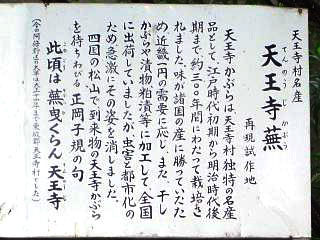 天王寺村名産
天王寺蕪
てんのうじかぶら
再現試作地
天王寺かぶらは天王寺村独特の名産
品として、江戸時代初期から明治時代後
期まで約三〇〇年間にわたって栽培さ
れました。味が諸国の産に勝っていたた
め近畿一円の需要に応じ、また、干し
かぶらや漬物粕漬等に加工して、全国
に出荷していましたが、虫害と都市化の
ため急激にその姿を消しました。
四国の松山で、到来物の天王寺かぶら
を待ちわびる正岡子規の句
此頃は蕪曳くらん天王寺